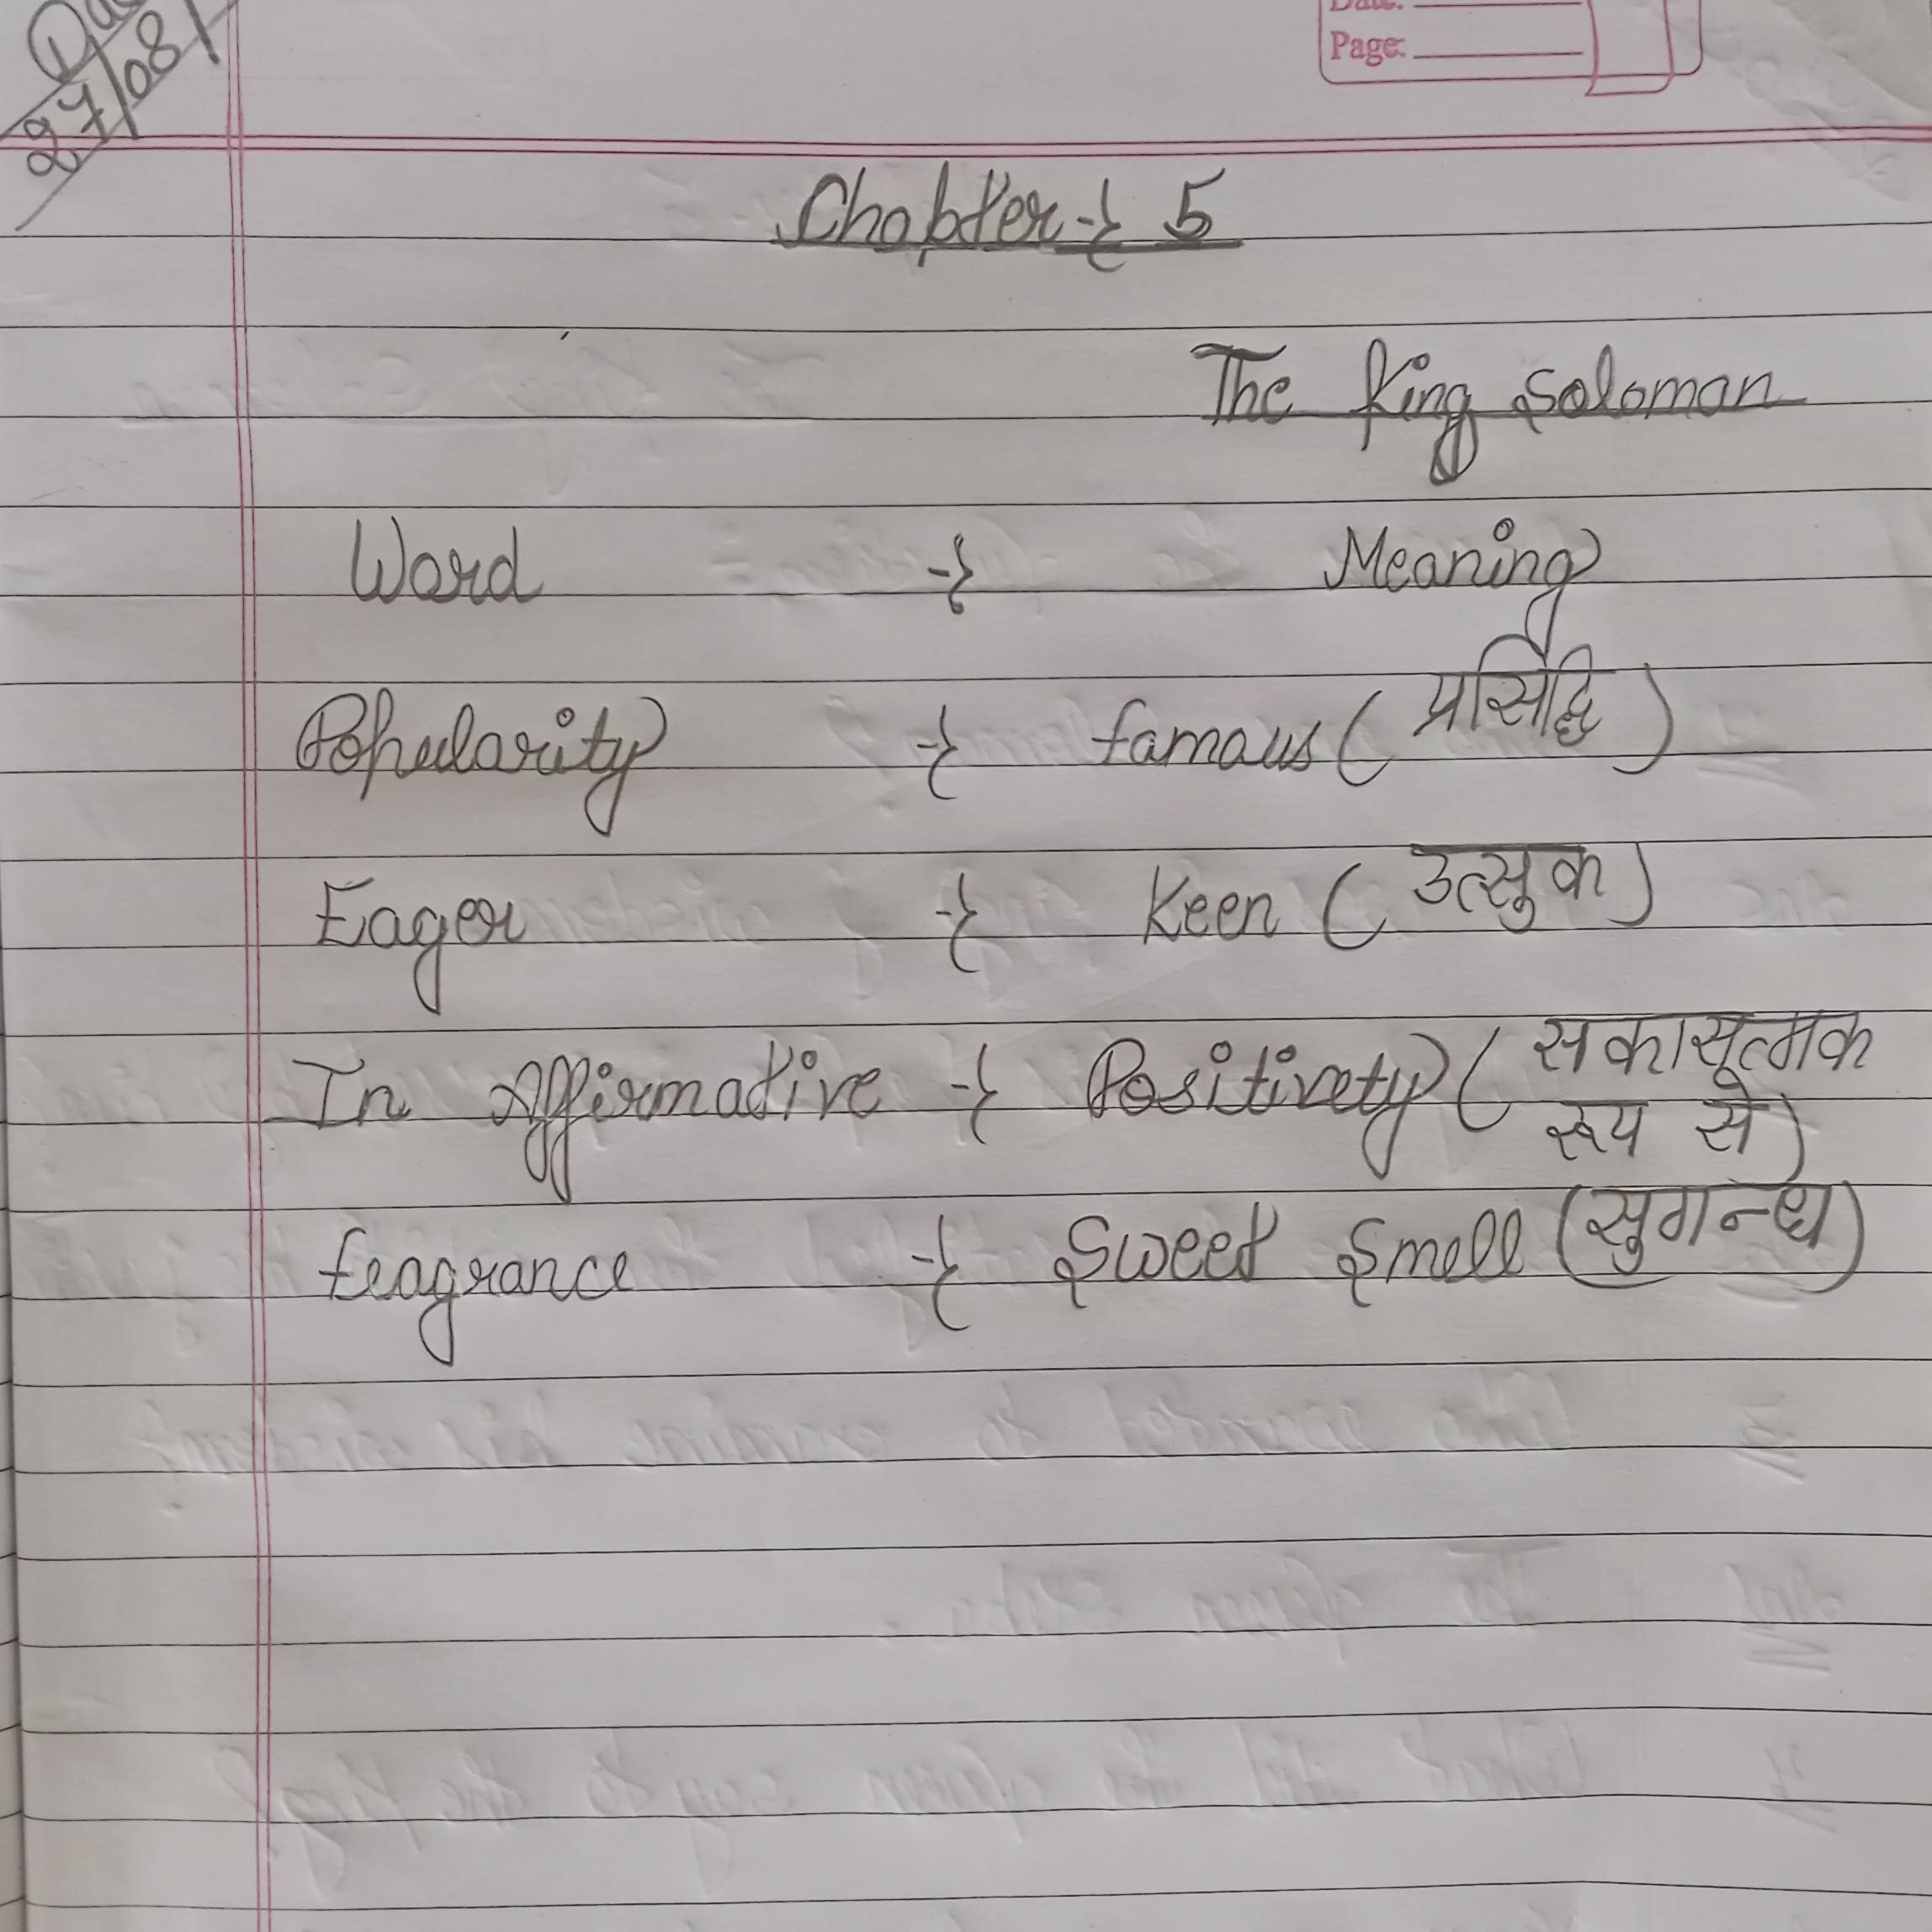 27/08/
Date:
Page:
Chapter -} 5
The King Soloman
Word -} Meaning
Popularity -} famous ( प्रसिद्धि )
Eager -} Keen ( उत्सुक )
In Affirmative -} Positivety ( सकारात्मक
रूप से )
fragrance -} Sweet Smell ( सुगन्ध )